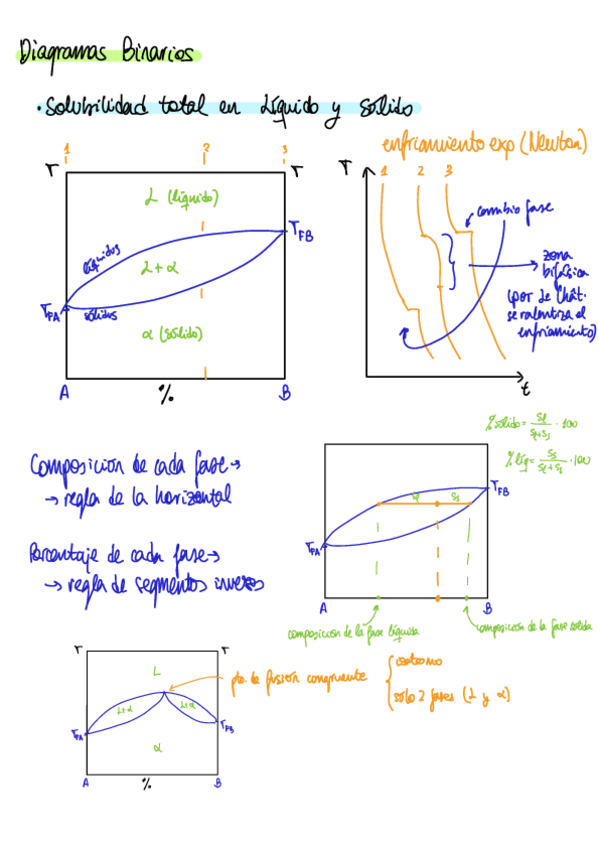 Diagramas Binarios
• Solubilidad total en Líquido y Sólido
1 2 3
T T
L (líquido)
TFB
líquidus
L + α
TFA
sólidus
α (sólido)
A % B
enfriamiento exp (Newton)
T 1 2 3
cambio fase
zona
bifásica
(por Le Chât.
se ralentiza el
enfriamiento)
t
% sólido = Sl / Sl+Ss · 100
% líq = Ss / Sl+Ss · 100
Composición de cada fase →
→ regla de la horizontal
Porcentaje de cada fase →
→ regla de segmentos inversos
Sl Ss
TFB
TFA
A B
composición de la fase líquida
composición de la fase sólida
T T
L
L+α L+α
TFA TFB
α
A % B
pto. de fusión congruente
isotermo
solo 2 fases (L y α)